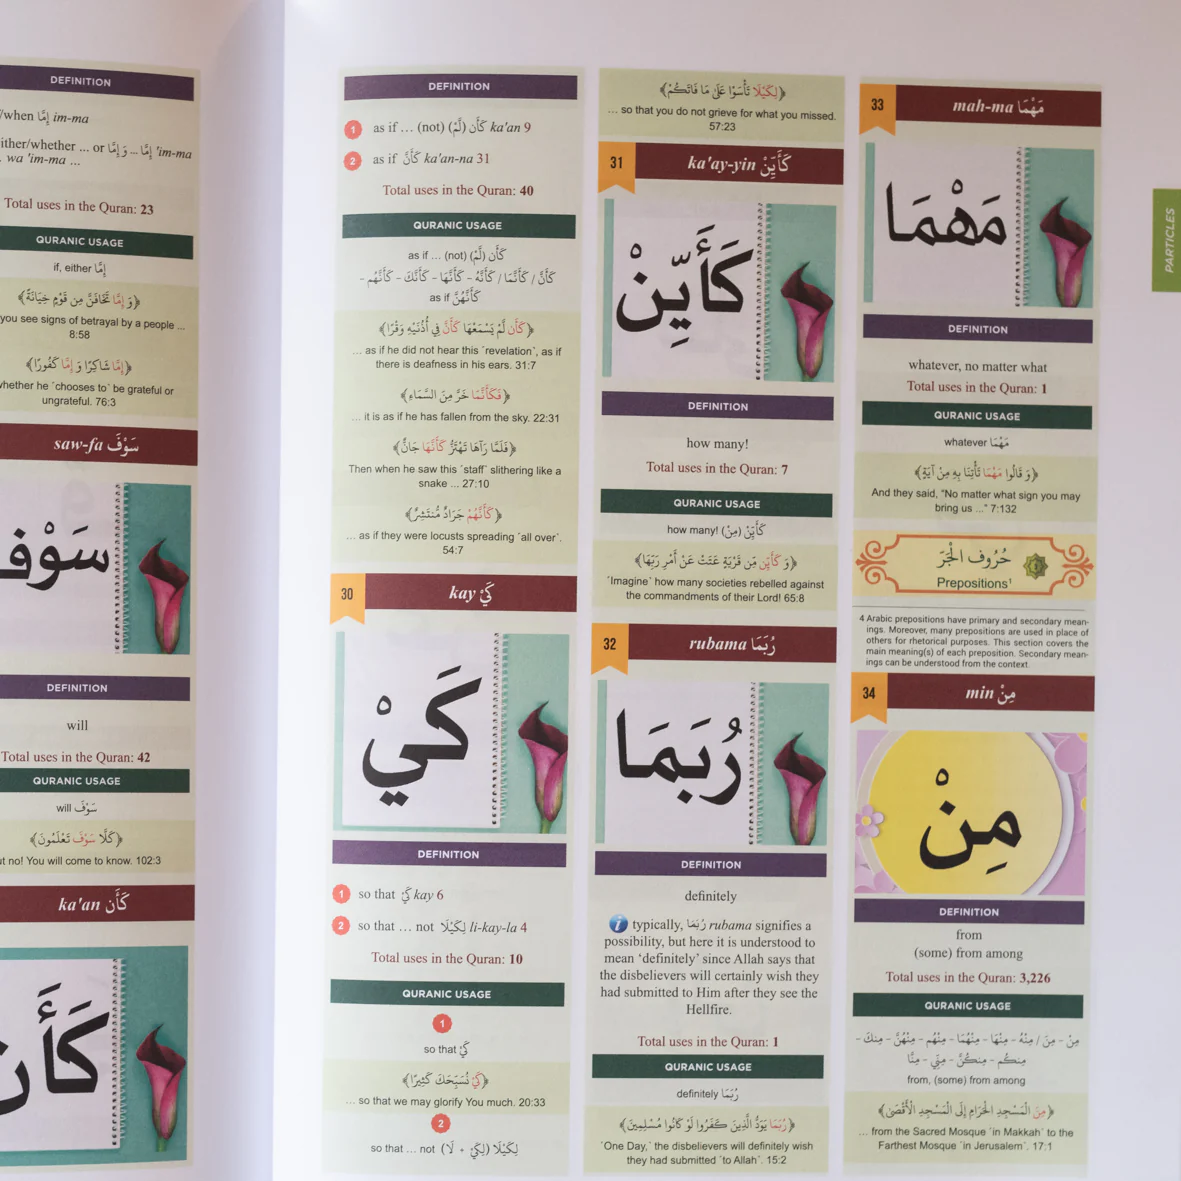 DEFINITION
/when إِمَّا im-ma
ither/whether ... or إِمَّا ... وَ إِمَّا 'im-ma
... wa 'im-ma ...
Total uses in the Quran: 23
QURANIC USAGE
if, either إِمَّا
﴿وَ إِمَّا تَخَافَنَّ مِن قَوْمٍ خِيَانَةً﴾
you see signs of betrayal by a people ...
8:58
﴿إِمَّا شَاكِرًا وَ إِمَّا كَفُورًا﴾
whether he ˹chooses to˺ be grateful or
ungrateful. 76:3
saw-fa سَوْفَ
سَوْفَ
DEFINITION
will
Total uses in the Quran: 42
QURANIC USAGE
will سَوْفَ
﴿كَلَّا سَوْفَ تَعْلَمُونَ﴾
ut no! You will come to know. 102:3
ka'an كَأَن
كَأَن
DEFINITION
1 as if ... (not) كَأَن (لَّمْ) ka'an 9
2 as if كَأَنَّ ka'an-na 31
Total uses in the Quran: 40
QURANIC USAGE
as if ... (not) كَأَن (لَّمْ)
كَأَنَّ / كَأَنَّمَا / كَأَنَّهُ - كَأَنَّهَا - كَأَنَّكَ - كَأَنَّهُم -
as if كَأَنَّهُنَّ
﴿كَأَن لَّمْ يَسْمَعْهَا كَأَنَّ فِي أُذُنَيْهِ وَقْرًا﴾
... as if he did not hear this ˹revelation˺, as if
there is deafness in his ears. 31:7
﴿فَكَأَنَّمَا خَرَّ مِنَ السَّمَاءِ﴾
... it is as if he has fallen from the sky. 22:31
﴿فَلَمَّا رَآهَا تَهْتَزُّ كَأَنَّهَا جَانٌّ﴾
Then when he saw this ˹staff˺ slithering like a
snake ... 27:10
﴿كَأَنَّهُمْ جَرَادٌ مُّنتَشِرٌ﴾
... as if they were locusts spreading ˹all over˺.
54:7
30 kay كَيْ
كَيْ
DEFINITION
1 so that كَيْ kay 6
2 so that ... not لِكَيْلَا li-kay-la 4
Total uses in the Quran: 10
QURANIC USAGE
1
so that كَيْ
﴿كَيْ نُسَبِّحَكَ كَثِيرًا﴾
... so that we may glorify You much. 20:33
2
so that ... not لِكَيْلَا (لِكَيْ + لَا)
﴿لِكَيْلَا تَأْسَوْا عَلَىٰ مَا فَاتَكُمْ﴾
... so that you do not grieve for what you missed.
57:23
31 ka'ay-yin كَأَيِّنْ
كَأَيِّنْ
DEFINITION
how many!
Total uses in the Quran: 7
QURANIC USAGE
how many! كَأَيِّنْ (مِن)
﴿وَ كَأَيِّن مِّن قَرْيَةٍ عَتَتْ عَنْ أَمْرِ رَبِّهَا﴾
˹Imagine˺ how many societies rebelled against
the commandments of their Lord! 65:8
32 rubama رُبَمَا
رُبَمَا
DEFINITION
definitely
i typically, رُبَمَا rubama signifies a
possibility, but here it is understood to
mean ‘definitely’ since Allah says that
the disbelievers will certainly wish they
had submitted to Him after they see the
Hellfire.
Total uses in the Quran: 1
QURANIC USAGE
definitely رُبَمَا
﴿رُبَمَا يَوَدُّ الَّذِينَ كَفَرُوا لَوْ كَانُوا مُسْلِمِينَ﴾
˹One Day,˺ the disbelievers will definitely wish
they had submitted ˹to Allah˺. 15:2
33 mah-ma مَهْمَا
مَهْمَا
DEFINITION
whatever, no matter what
Total uses in the Quran: 1
QURANIC USAGE
whatever مَهْمَا
﴿وَ قَالُوا مَهْمَا تَأْتِنَا بِهِ مِنْ آيَةٍ﴾
And they said, “No matter what sign you may
bring us ...” 7:132
حُرُوف الْجَرّ
Prepositions¹
4 Arabic prepositions have primary and secondary mean-
ings. Moreover, many prepositions are used in place of
others for rhetorical purposes. This section covers the
main meaning(s) of each preposition. Secondary mean-
ings can be understood from the context.
34 min مِنْ
مِنْ
DEFINITION
from
(some) from among
Total uses in the Quran: 3,226
QURANIC USAGE
مِنْ - مِنَ / مِنْهُ - مِنْهَا - مِنْهُمَا - مِنْهُم - مِنْهُنَّ - مِنكَ -
مِنكُم - مِنكُنَّ - مِنِّي - مِنَّا
from, (some) from among
﴿مِنَ الْمَسْجِدِ الْحَرَامِ إِلَى الْمَسْجِدِ الْأَقْصَى﴾
... from the Sacred Mosque ˹in Makkah˺ to the
Farthest Mosque ˹in Jerusalem˺. 17:1
PARTICLES